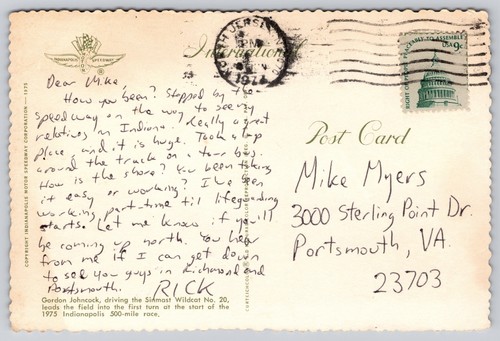 INDIANAPOLIS SPEEDWAY
®
International
NORTH JERSEY
PM
1977
RIGHT OF PEOPLE PEACEABLY TO ASSEMBLE
USA 9c
COPYRIGHT INDIANAPOLIS MOTOR SPEEDWAY CORPORATION — 1975
Dear Mike
How you been? Stopped by the
speedway on the way to seeing
relatives in Indiana. Really a great
place and it is huge. Took a lap
around the track on a tour bus.
How is the shore? You been taking
it easy or working? I've been
working part-time til lifeguarding
starts. Let me know if you'll
be coming up north. You hear
from me if I can get down
to see you guys in Richmond and
Portsmouth.
RICK
Gordon Johncock, driving the Sinmast Wildcat No. 20,
leads the field into the first turn at the start of the
1975 Indianapolis 500-mile race.
Post Card
Mike Myers
3000 Sterling Point Dr.
Portsmouth, VA.
23703